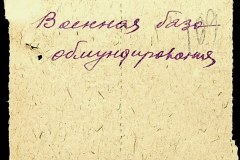 Военная база
обмундирования